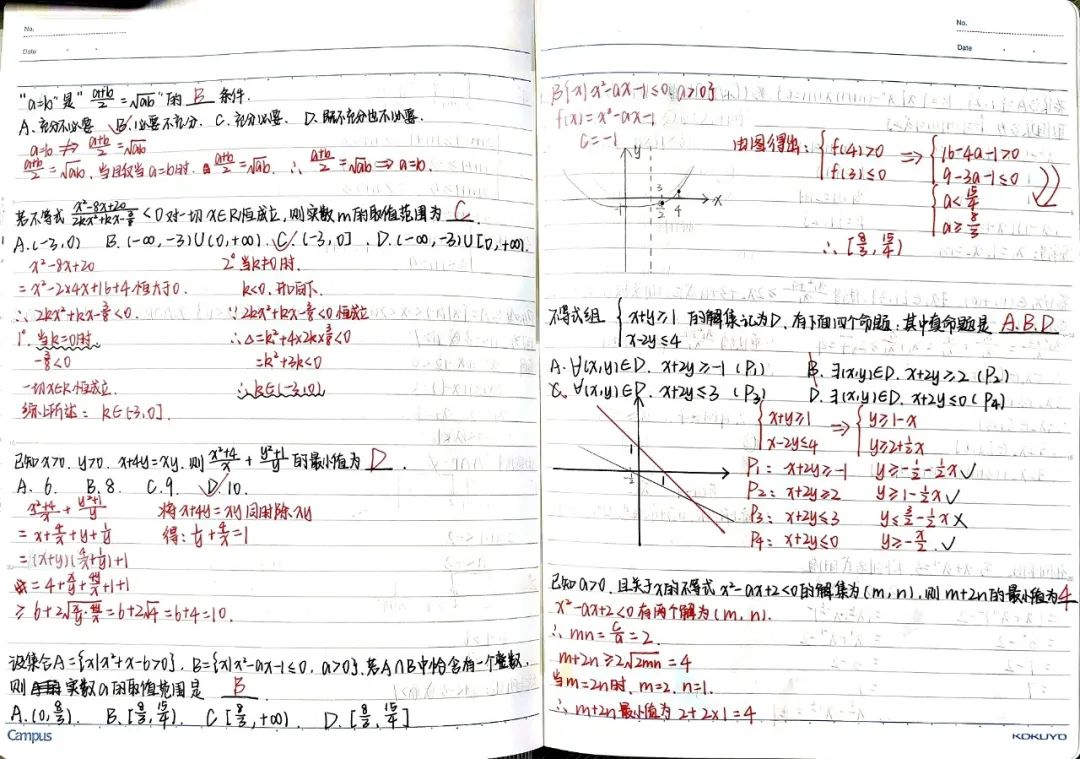 No.
Date
"a=b"是"(a+b)/2=√ab"的 B 条件.
A、充分不必要 B、必要不充分. C、充分必要. D、既不充分也不必要.
a=b ⇏ (a+b)/2=√ab
(a+b)/2=√ab, 当且仅当a=b时. (a+b)/2=√ab. ∴ (a+b)/2=√ab ⇒ a=b.
若不等式 (x²-8x+20)/(2kx²+kx-3/8) <0对一切x∈R恒成立,则实数m的取值范围为 C .
A.(-3,0) B.(-∞,-3)∪(0,+∞). C.(-3,0]. D.(-∞,-3)∪[0,+∞).
x²-8x+20 2° 当k≠0时.
=x²-2×4x+16+4.恒大于0. k<0.开口向下.
∴2kx²+kx-3/8<0. ∵2kx²+kx-3/8<0恒成立
1°.当k=0时 ∴Δ=k²+4×2k×3/8<0
-3/8<0 =k²+3k<0
一切x∈R恒成立. ∴k∈(-3,0).
综上所述: k∈(-3,0].
已知x>0. y>0. x+4y=xy. 则 (x²+4)/x + (y²+1)/y 的最小值为 D .
A. 6. B. 8. C. 9. D. 10.
(x²+4)/x + (y²+1)/y 将x+4y=xy同时除xy
=x+4/x+y+1/y 得: 1/y+4/x=1
=(x+y)(4/x+1/y)+1
=4+x/y+4y/x+1+1
≥6+2√(x/y·4y/x)=6+2√4=6+4=10.
设集合A={x|x²+x-6>0}. B={x|x²-ax-1≤0. a>0}.若A∩B中恰含有一个整数,
则实数a的取值范围是 B
A.(0,8/3). B.[8/3,15/4). C[8/3,+∞). D.[8/3,15/4]
Campus
No.
Date
B{x|x²-ax-1≤0,a>0}
f(x)=x²-ax-1
c=-1
y
x
-1
a/2
3
4
由图得出: { f(4)>0 ⇒ { 16-4a-1>0
f(3)≤0 9-3a-1≤0
{ a<15/4
a≥8/3
∴ [8/3,15/4)
不等式组 { x+y≥1 的解集记为D. 有下面四个命题:其中真命题是 A.B.D.
x-2y≤4
A. ∀(x,y)∈D. x+2y≥-1 (P₁) B. ∃(x,y)∈D. x+2y≥2 (P₂)
C. ∀(x,y)∈D. x+2y≤3 (P₃) D. ∃(x,y)∈D. x+2y≤0 (P₄)
{ x+y≥1 ⇒ { y≥1-x
x-2y≤4 y≥2+½x
1
-½
1
P₁: x+2y≥-1 y≥-½-½x ✓
P₂: x+2y≥2 y≥1-½x ✓
P₃: x+2y≤3 y≤3/2-½x ×
P₄: x+2y≤0 y≥-x/2. ✓
已知a>0. 且关于x的不等式x²-ax+2<0的解集为(m,n). 则m+2n的最小值为4
x²-ax+2<0有两个解为(m,n).
∴ mn=c/a=2.
m+2n≥2√2mn=4
当m=2n时. m=2. n=1.
∴ m+2n最小值为2+2×1=4
KOKUYO